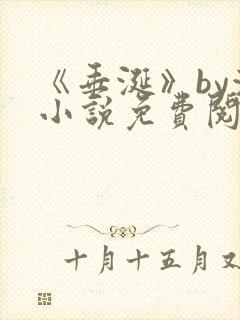 《垂涎》by
小説免費閱
十月十五月又